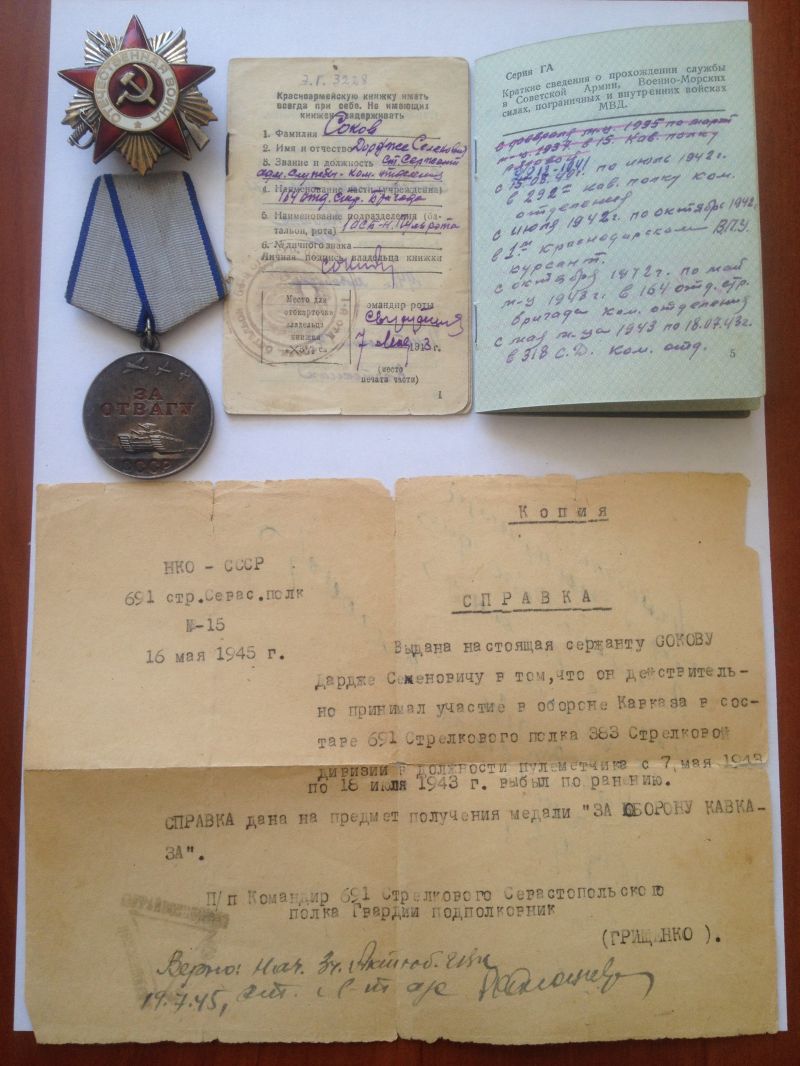 ОТЕЧЕСТВЕННАЯ ВОЙНА
ЗА
ОТВАГУ
СССР
Э.Г. 3228
Красноармейскую книжку иметь
всегда при себе. Не имеющих
книжек задерживать
1. Фамилия Соков
2. Имя и отчество Дорджи Семенович
3. Звание и должность Ст. Сержант
ком. отделения
4. Наименование части (учреждения)
164 отд. стр. бригада
5. Наименование подразделения (ба-
тальон, рота)
6. № личного знака
Личная подпись владельца книжки
Место для
фотокарточки
владельца
книжки
Командир роты
7 мая 1943 г.
(место
печата части)
1
Серия ГА
Краткие сведения о прохождении службы
в Советской Армии, Военно-Морских
силах, пограничных и внутренних войсках
МВД.
с февраля м-ц 1935 по март
м-ц 1937 в 15 кав. полку
по июль 1942 г.
в 292м кав. полку ком.
отделения
с июля 1942 г. по октябрь 1942
в 1м Краснодарском ВПУ
курсант.
с октября 1942 г. по май
м-ц 1943 г. в 164 отд. стр.
бригада ком. отделения
с мая м-ца 1943 по 18.07.43 г.
в 318 С.Д. ком. отд.
5
Копия
НКО - СССР
691 стр.Севас.полк
№-15
16 мая 1945 г.
СПРАВКА
Выдана настоящая сержанту СОКОВУ
Дардже Семеновичу в том,что он действитель-
но принимал участие в обороне Кавказа в сос-
таве 691 Стрелкового полка 383 Стрелковой
дивизии в должности пулеметчика с 7 мая 1943
по 18 июля 1943 г. выбыл по ранению.
СПРАВКА дана на предмет получения медали "ЗА ОБОРОНУ КАВКА-
ЗА".
П/п Командир 691 Стрелкового Севастопольского
полка Гвардии подполковник
(ГРИЩЕНКО ).
Верно: Нач. Зч.
19.7.45,